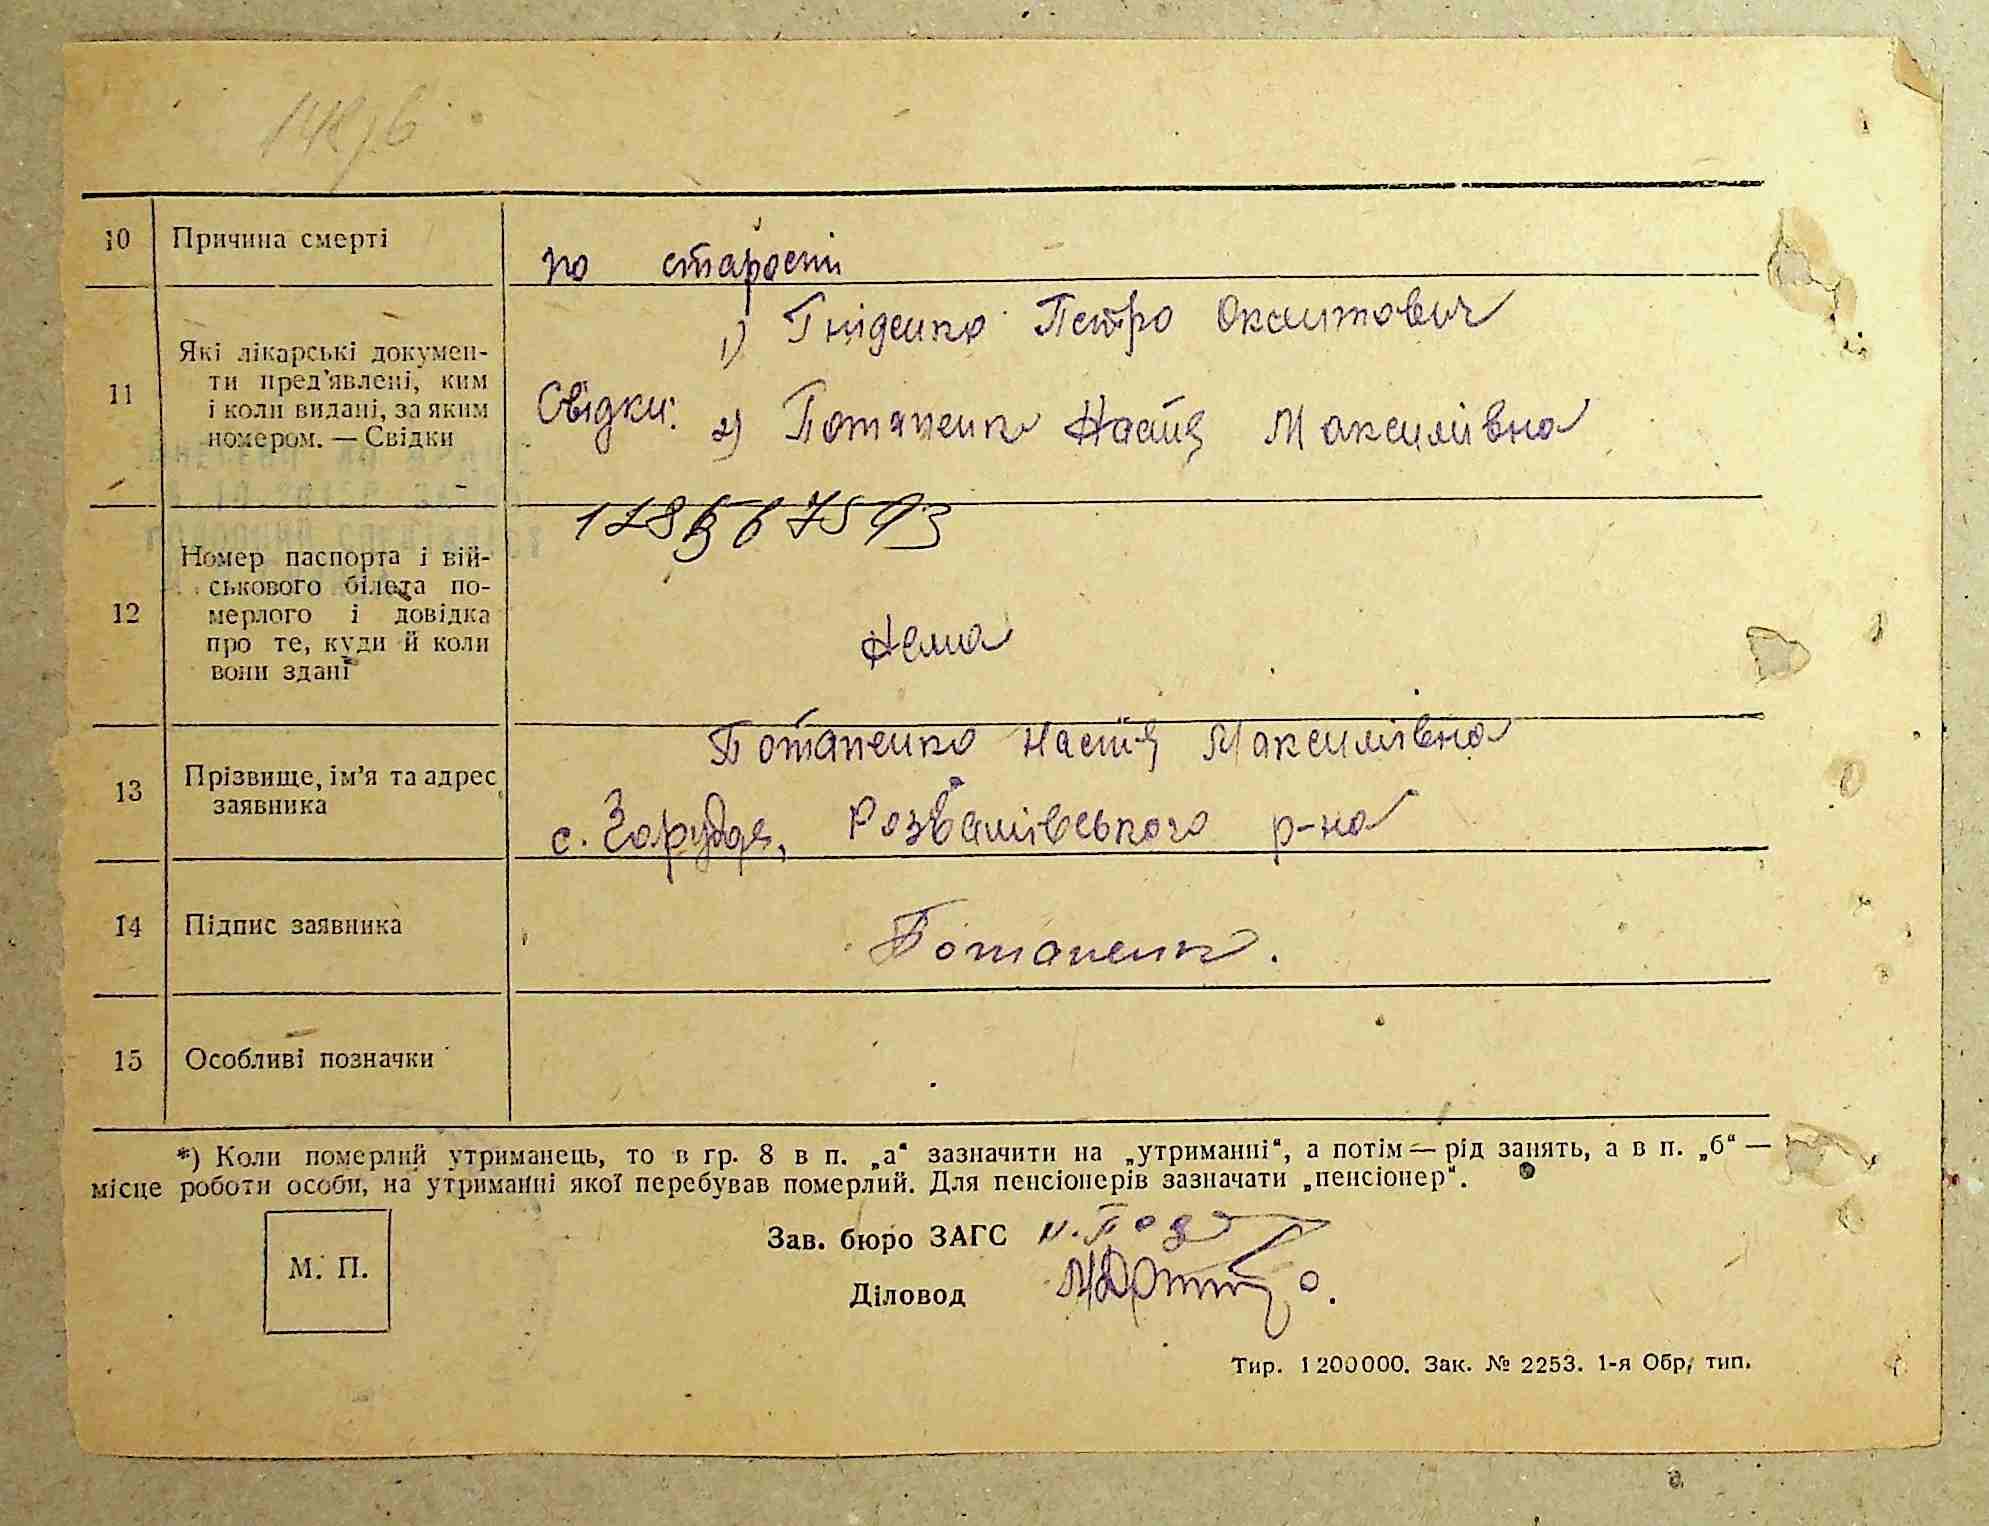 10 Причина смерті
по старости
11 Які лікарські докумен-
ти пред'явлені, ким
і коли видані, за яким
номером. — Свідки
1) Гниденко Петро
Свідки: 2) Потапенко Настя Максимівна
12 Номер паспорта і вій-
ськового білета по-
мерлого і довідка
про те, куди й коли
вони здані
Нема
13 Прізвище, ім'я та адрес
заявника
Потапенко Настя Максимівна
с. Зорудя, Розважівського р-на
14 Підпис заявника
Потапенко.
15 Особливі позначки
*) Коли померлий утриманець, то в гр. 8 в п. „а“ зазначити на „утриманні“, а потім — рід занять, а в п. „б“ —
місце роботи особи, на утриманні якої перебував померлий. Для пенсіонерів зазначати „пенсіонер“.
М. П.
Зав. бюро ЗАГС
Діловод
Тир. 1 200 000. Зак. № 2253. 1-я Обр. тип.